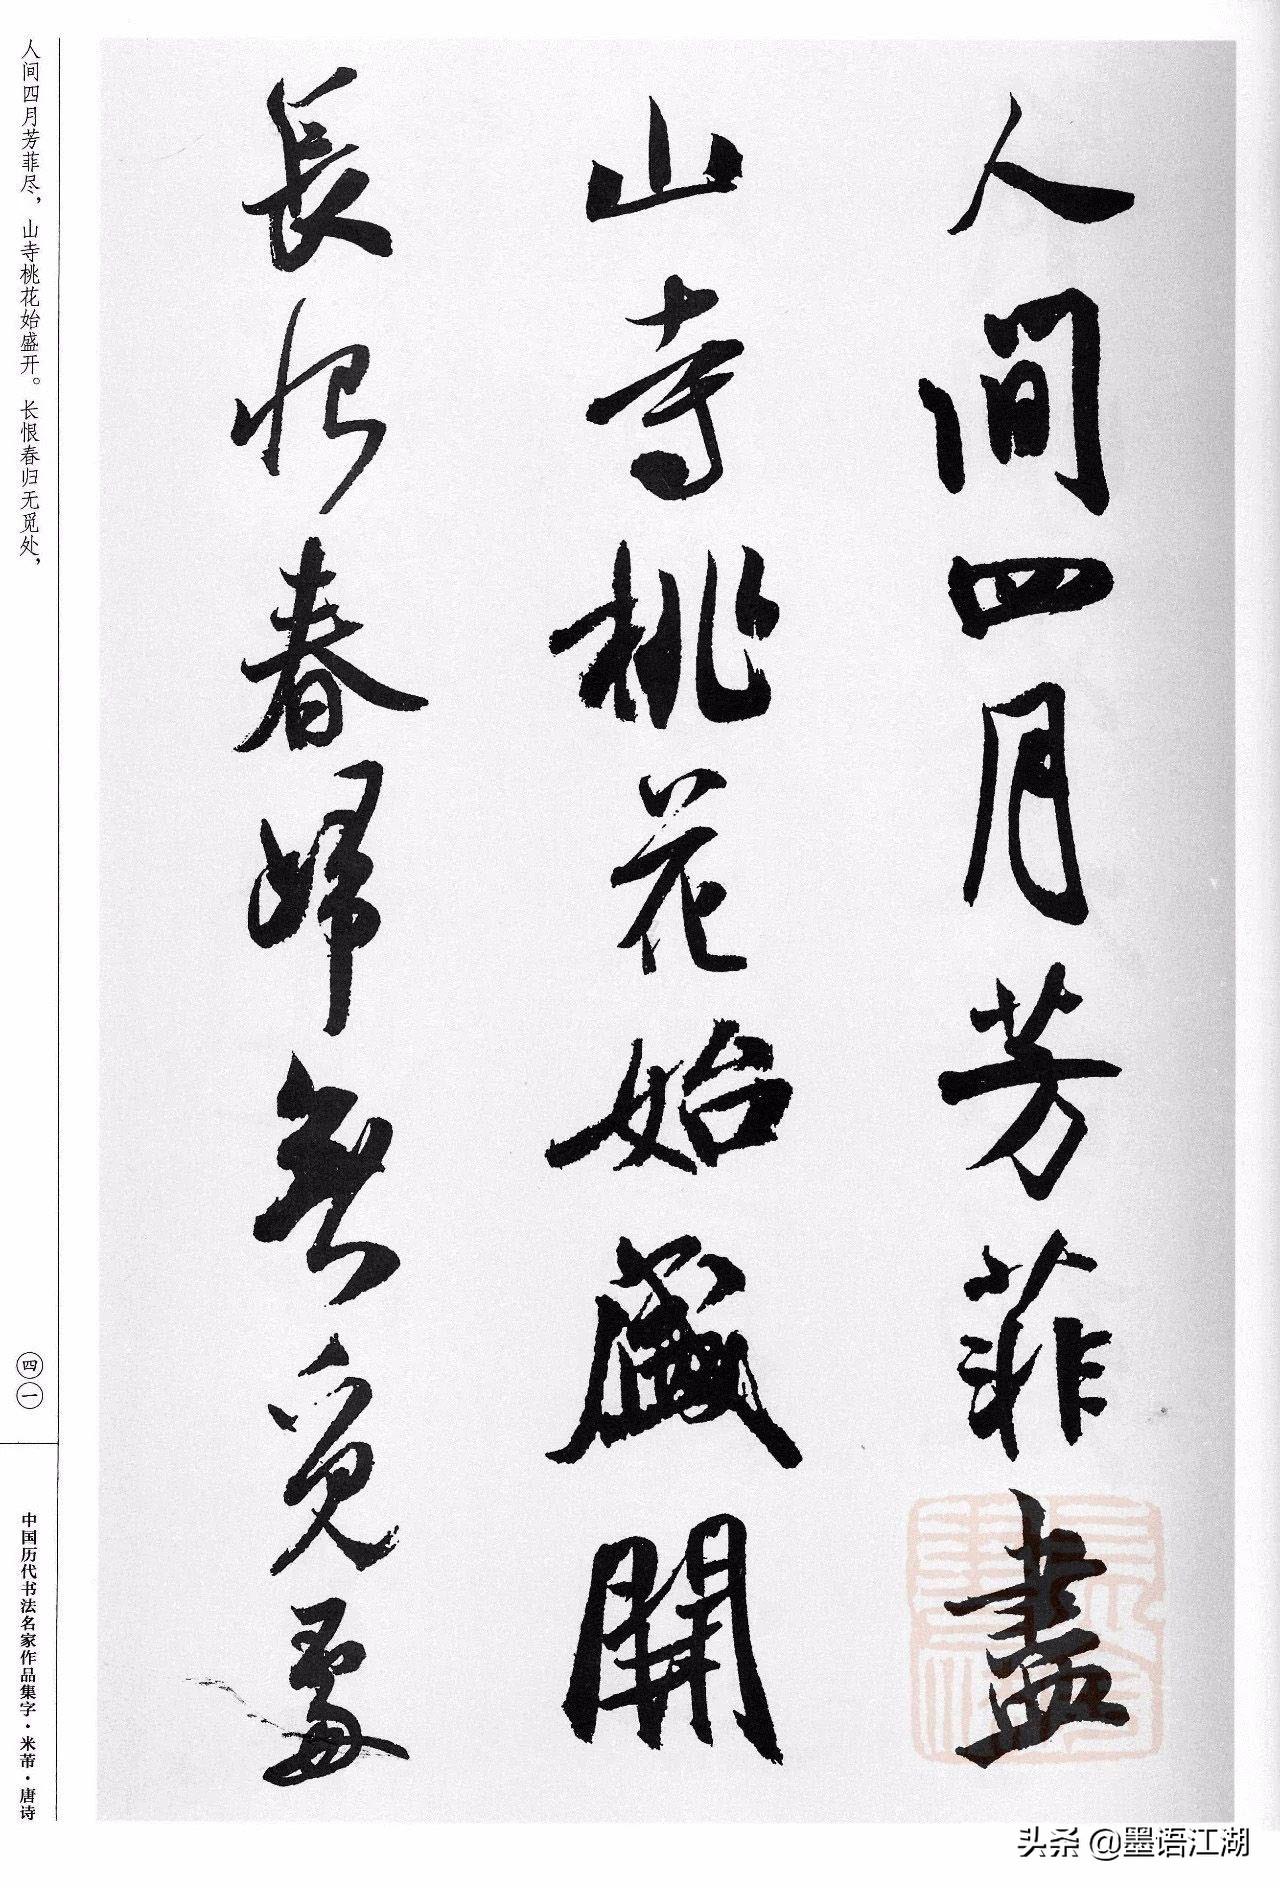 人間四月芳菲盡
山寺桃花始盛開
長恨春歸無覓處
人间四月芳菲尽，山寺桃花始盛开。长恨春归无觅处，
四一
中国历代书法名家作品集字·米芾·唐诗
头条 @墨语江湖